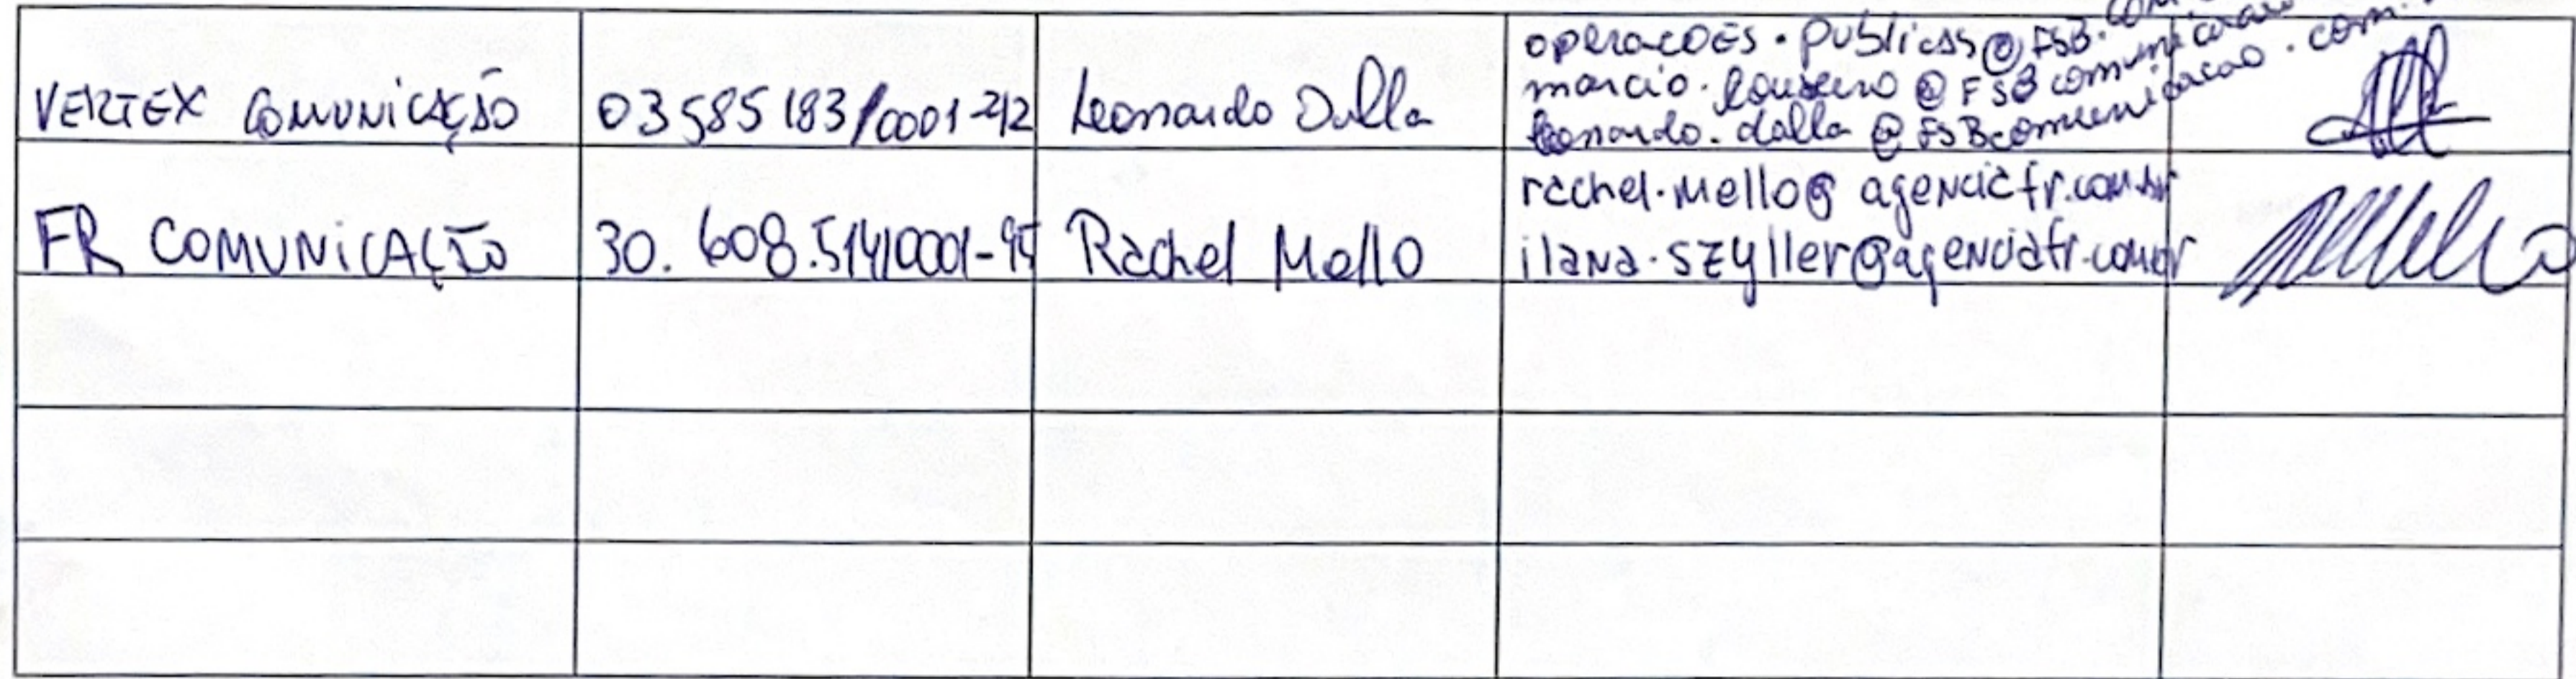 VERTEX COMUNICAÇÃO 03585183/0001-42 Leonardo Dalla
operacoes.publicas@FSB.com
marcio.loureiro@FSBcomunicacao
leonardo.dalla@FSBcomunicacao.com.
FR COMUNICAÇÃO 30.608.514/0001-95 Rachel Mello
rachel.mello@agenciafr.com.br
ilana.szyller@agenciafr.com.br